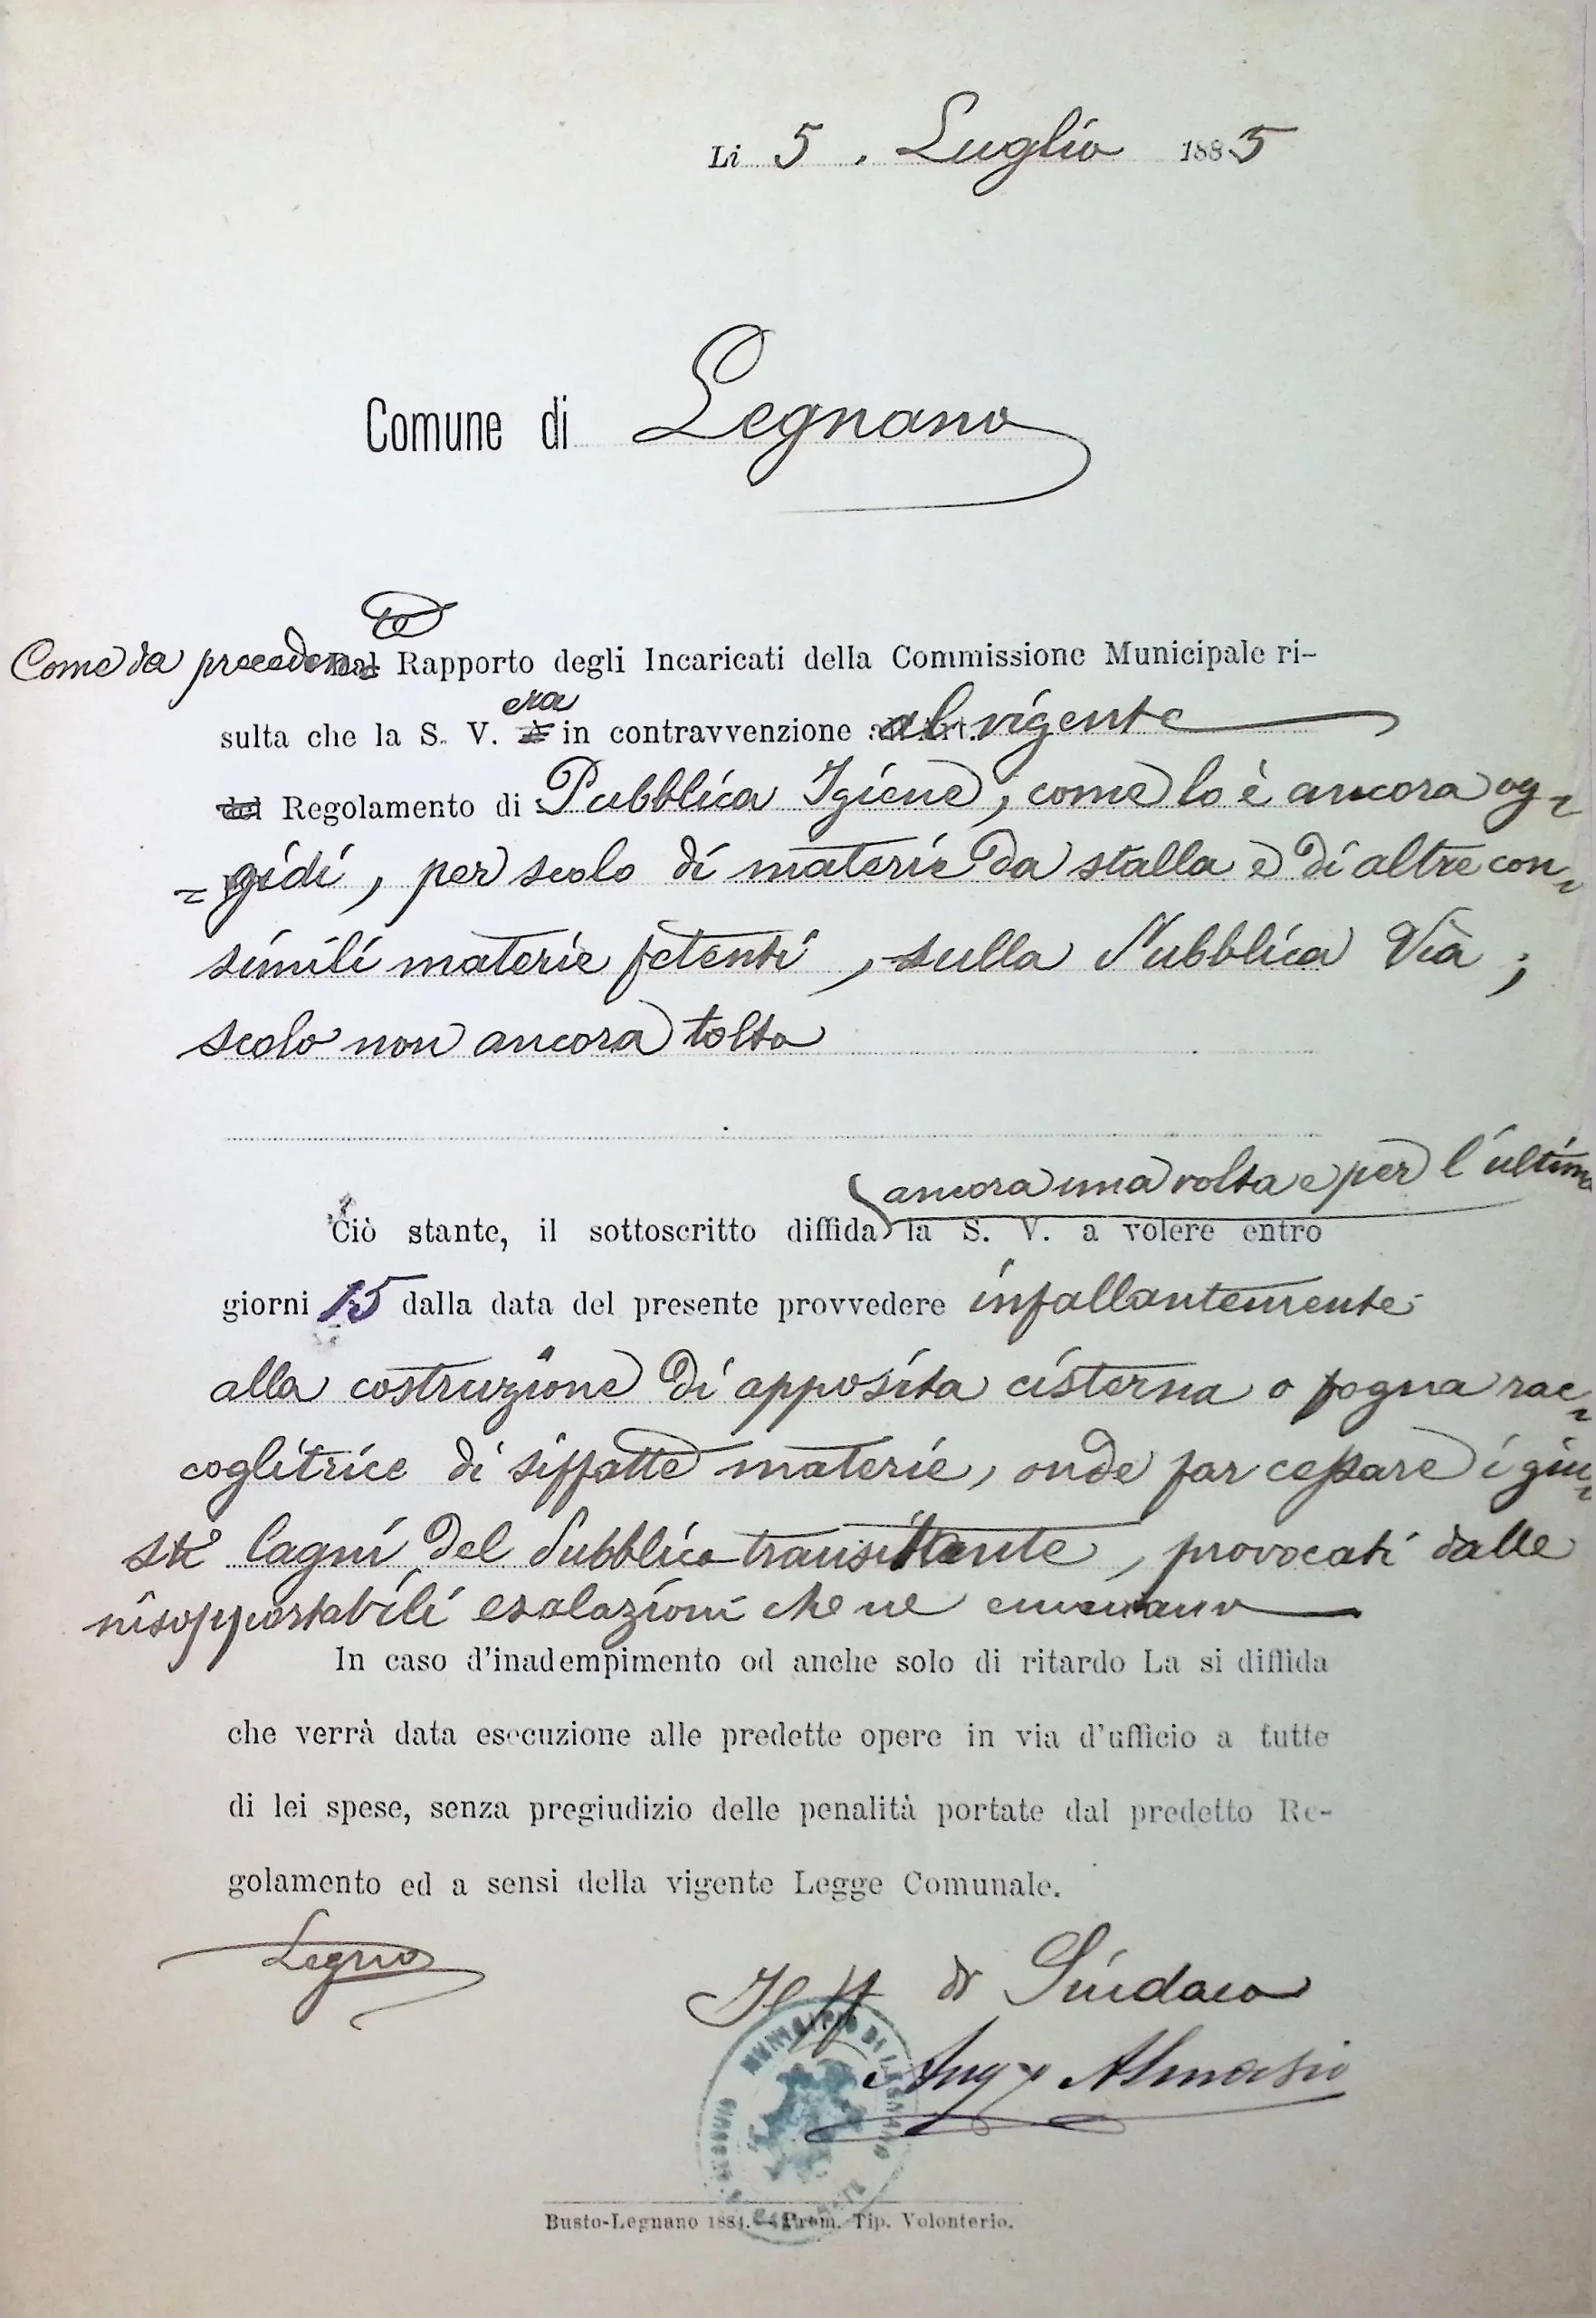 Li 5. Luglio 1885
Comune di Legnano
te
Come da preceden Dal Rapporto degli Incaricati della Commissione Municipale ri-
era
sulta che la S. V. è in contravvenzione al vigente
del Regolamento di Pubblica Igiene, come lo è ancora og=
=gidì, per scolo di materie da stalla e di altre con=
simili materie fetenti, sulla Pubblica Via;
scolo non ancora tolto
ancora una volta e per l'ultima
Ciò stante, il sottoscritto diffida la S. V. a volere entro
giorni 15 dalla data del presente provvedere infallantemente
alla costruzione di apposita cisterna o fogna rac=
coglitrice di siffatte materie, onde far cessare i giu=
sti lagni del Pubblico transittante, provocati dalle
insopportabili esalazioni che ne emanano
In caso d'inadempimento od anche solo di ritardo La si diffida
che verrà data esecuzione alle predette opere in via d'ufficio a tutte
di lei spese, senza pregiudizio delle penalità portate dal predetto Re-
golamento ed a sensi della vigente Legge Comunale.
Il ff di Sindaco
Almasio
MUNICIPIO DI LEGNANO
Busto-Legnano 1884. — Prem. Tip. Volonterio.